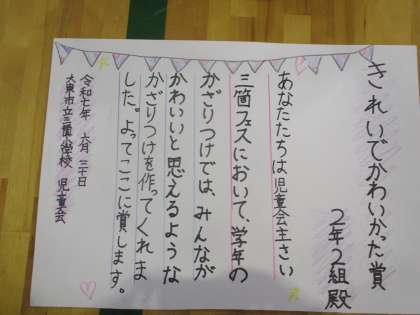 きれいでかわいかった賞
2年2組殿
あなたたちは児童会主さい
三箇フェスにおいて、学年の
かざりつけでは、みんなが
かわいいと思えるような
かざりつけを作ってくれま
した。よってここに賞します。
令和七年 六月 三十日
大東市立三箇小学校 児童会